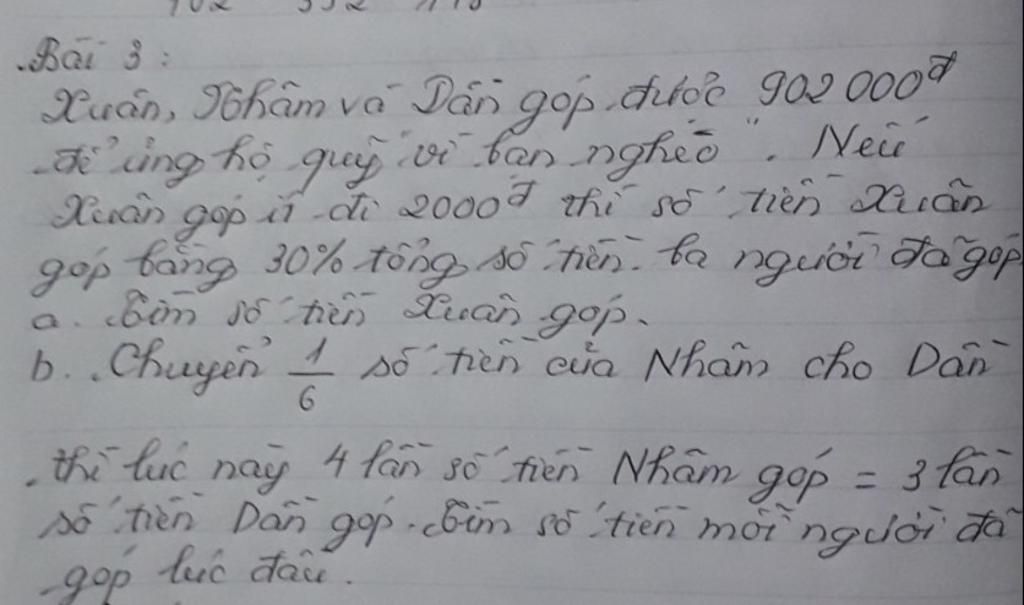 Bài 3 :
Xuân, Nhâm và Dần góp được 902 000đ
để ủng hộ quỹ "vì bạn nghèo". Nếu
Xuân góp ít đi 2000đ thì số tiền Xuân
góp bằng 30% tổng số tiền ba người đã góp
a. Tìm số tiền Xuân góp.
b. Chuyển 1/6 số tiền của Nhâm cho Dần
thì lúc này 4 lần số tiền Nhâm góp = 3 lần
số tiền Dần góp. Tìm số tiền mỗi người đã
góp lúc đầu.